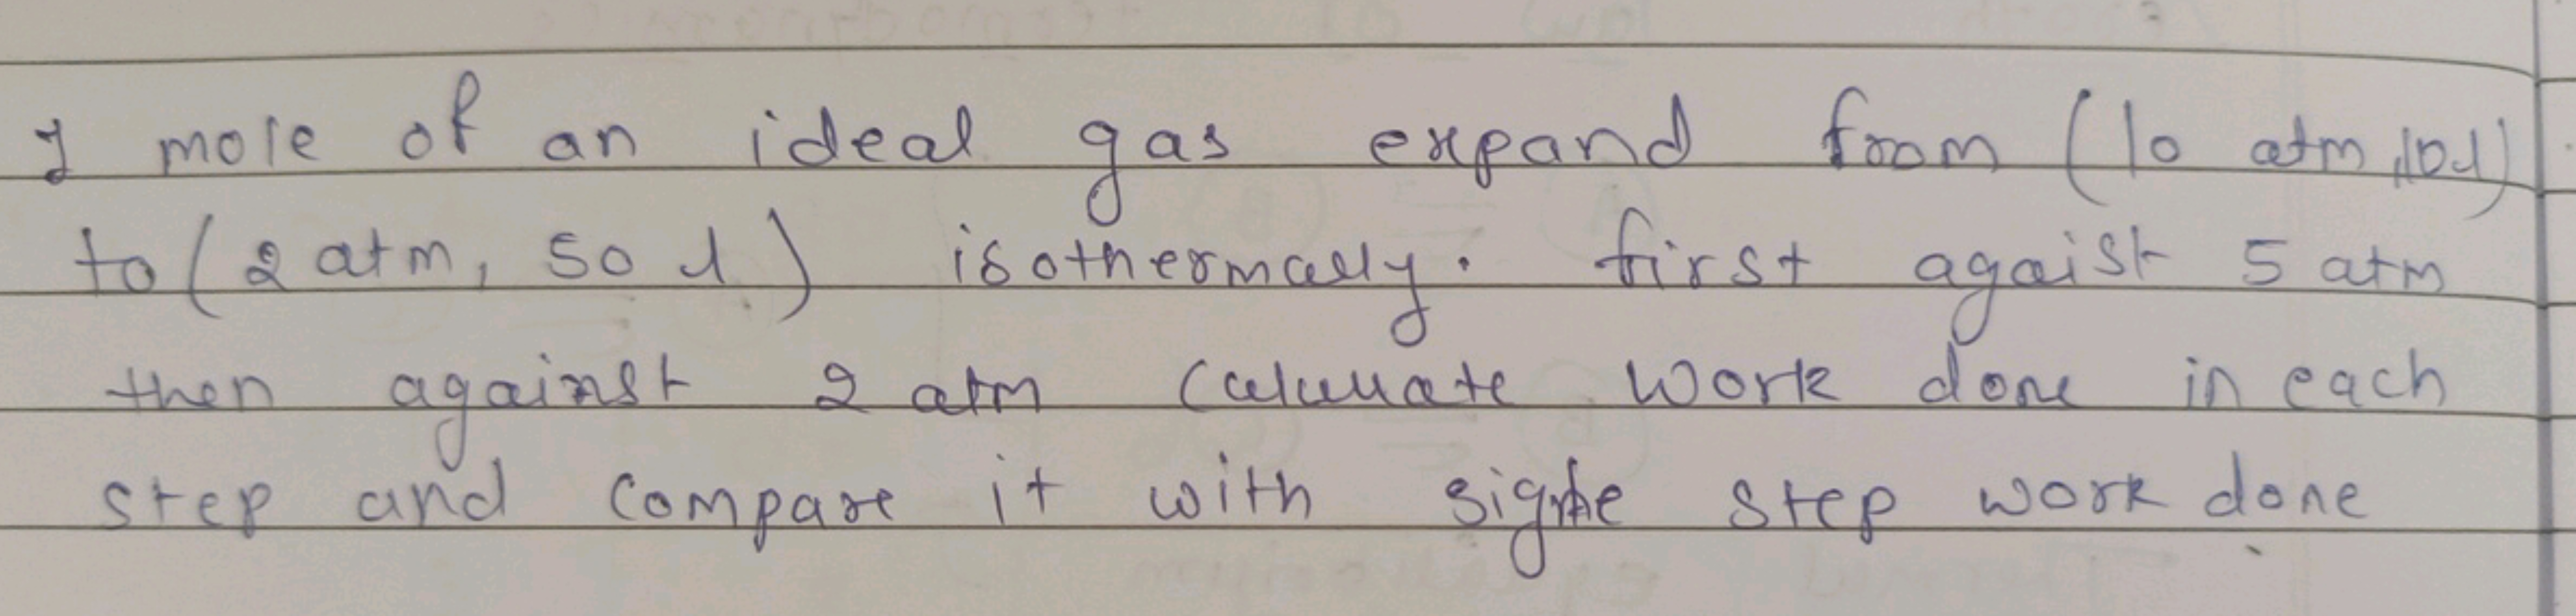 1 mole of an ideal gas expand from (10 atm, 10 l)
to (2 atm, 50 l) isothermally. first agaist 5 atm
then against 2 atm Calculate work done in each
step and compare it with step work done